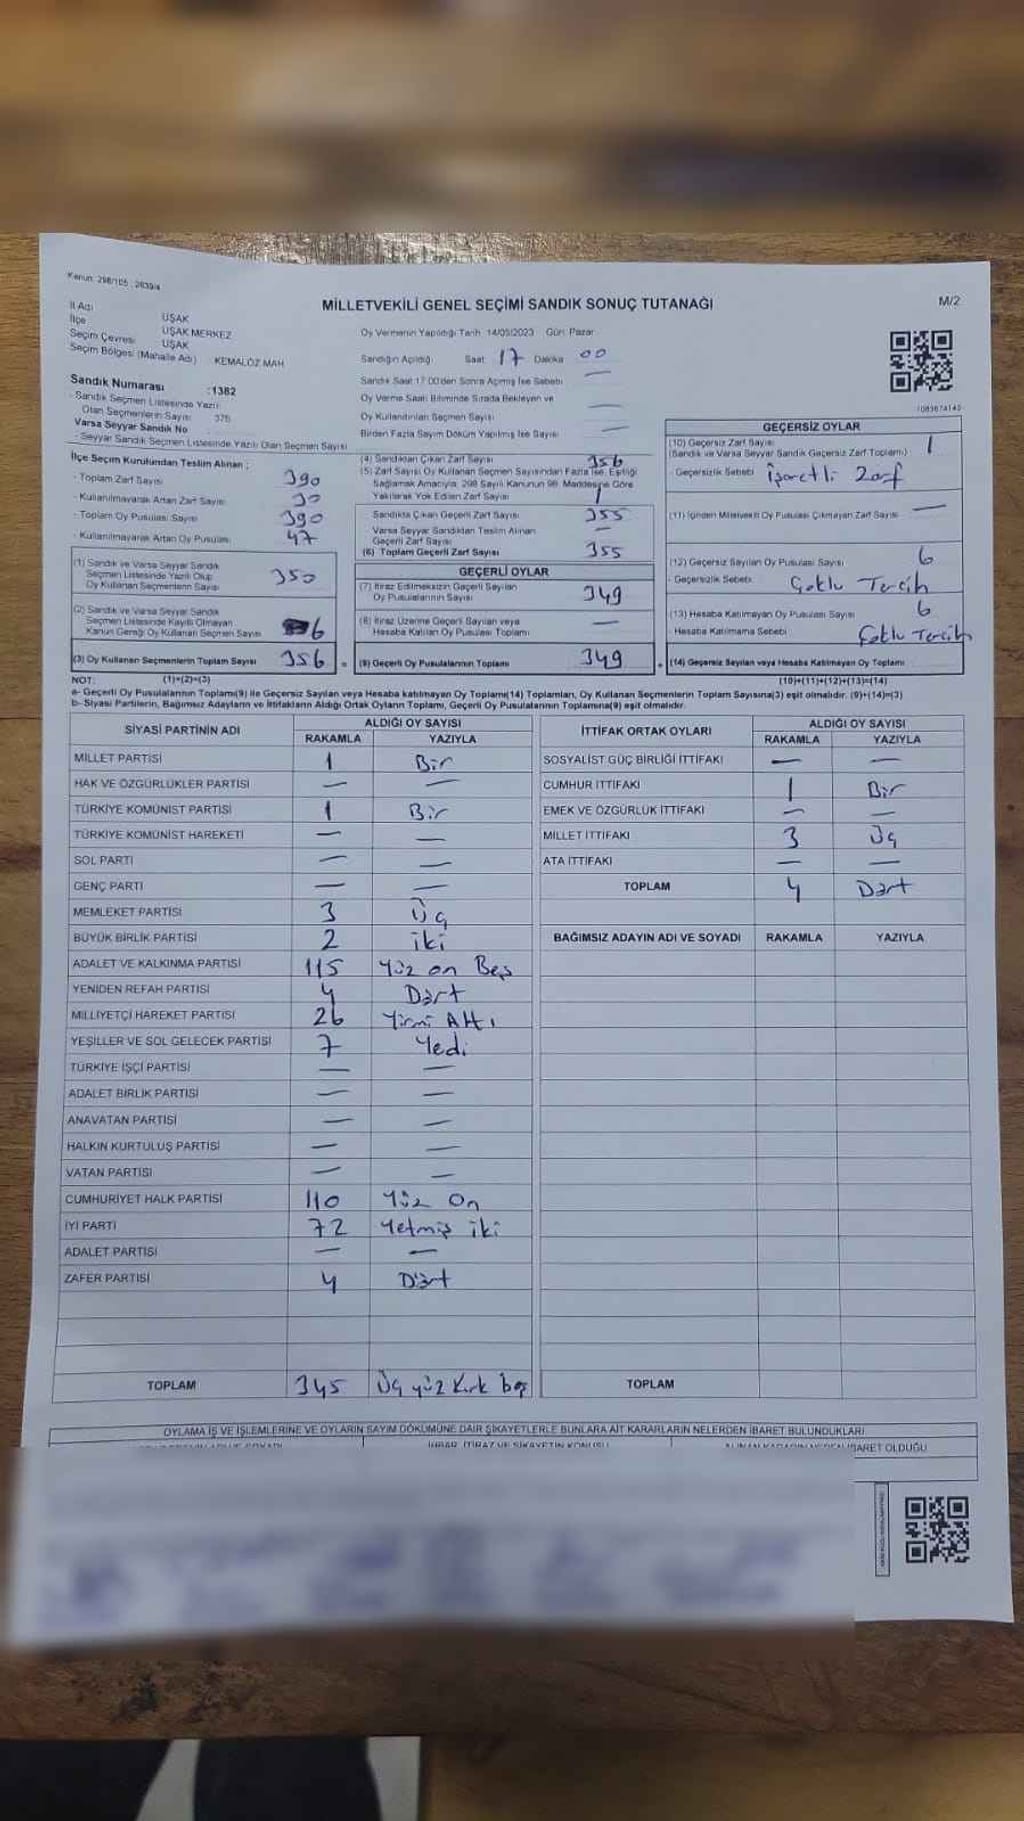 Kanun: 298/105 ; 2839/4
MİLLETVEKİLİ GENEL SEÇİMİ SANDIK SONUÇ TUTANAĞI
M/2
İl Adı UŞAK
İlçe UŞAK MERKEZ
Seçim Çevresi UŞAK
Seçim Bölgesi (Mahalle Adı) KEMALÖZ MAH
Sandık Numarası :1382
- Sandık Seçmen Listesinde Yazılı
Olan Seçmenlerin Sayısı 376
Varsa Seyyar Sandık No
- Seyyar Sandık Seçmen Listesinde Yazılı Olan Seçmen Sayısı
Oy Vermenin Yapıldığı Tarih 14/05/2023 Gün: Pazar
Sandığın Açıldığı Saat 17 Dakika 00
Sandık Saat 17.00'den Sonra Açılmış İse Sebebi —
Oy Verme Saati Bitiminde Sırada Bekleyen ve
Oy Kullandırılan Seçmen Sayısı —
Birden Fazla Sayım Döküm Yapılmış İse Sayısı —
İlçe Seçim Kurulundan Teslim Alınan ;
- Toplam Zarf Sayısı 390
- Kullanılmayarak Artan Zarf Sayısı 30
- Toplam Oy Pusulası Sayısı 390
- Kullanılmayarak Artan Oy Pusulası 47
(1) Sandık ve Varsa Seyyar Sandık
Seçmen Listesinde Yazılı Olup
Oy Kullanan Seçmenlerin Sayısı 350
(2) Sandık ve Varsa Seyyar Sandık
Seçmen Listesinde Kayıtlı Olmayan
Kanun Gereği Oy Kullanan Seçmen Sayısı 6
(3) Oy Kullanan Seçmenlerin Toplam Sayısı 356
(4) Sandıktan Çıkan Zarf Sayısı 356
(5) Zarf Sayısı Oy Kullanan Seçmen Sayısından Fazla İse, Eşitliği
Sağlamak Amacıyla, 298 Sayılı Kanunun 98. Maddesine Göre
Yakılarak Yok Edilen Zarf Sayısı 1
Sandıkta Çıkan Geçerli Zarf Sayısı 355
Varsa Seyyar Sandıktan Teslim Alınan
Geçerli Zarf Sayısı —
(6) Toplam Geçerli Zarf Sayısı 355
GEÇERLİ OYLAR
(7) İtiraz Edilmeksizin Geçerli Sayılan
Oy Pusulalarının Sayısı 349
(8) İtiraz Üzerine Geçerli Sayılan veya
Hesaba Katılan Oy Pusulası Toplamı —
= (9) Geçerli Oy Pusulalarının Toplamı 349
GEÇERSİZ OYLAR
(10) Geçersiz Zarf Sayısı 1
(Sandık ve Varsa Seyyar Sandık Geçersiz Zarf Toplamı)
- Geçersizlik Sebebi İşaretli Zarf
(11) İçinden Milletvekili Oy Pusulası Çıkmayan Zarf Sayısı —
(12) Geçersiz Sayılan Oy Pusulası Sayısı 6
- Geçersizlik Sebebi Çoklu Tercih
(13) Hesaba Katılmayan Oy Pusulası Sayısı 6
Hesaba Katılmama Sebebi Çoklu Tercih
+ (14) Geçersiz Sayılan veya Hesaba Katılmayan Oy Toplamı
NOT: (1)+(2)=(3) (10)+(11)+(12)+(13)=(14)
a- Geçerli Oy Pusulalarının Toplamı(9) ile Geçersiz Sayılan veya Hesaba katılmayan Oy Toplamı(14) Toplamları, Oy Kullanan Seçmenlerin Toplam Sayısına(3) eşit olmalıdır. (9)+(14)=(3)
b- Siyasi Partilerin, Bağımsız Adayların ve İttifakların Aldığı Ortak Oyların Toplamı, Geçerli Oy Pusulalarının Toplamına(9) eşit olmalıdır.
SİYASİ PARTİNİN ADI ALDIĞI OY SAYISI
RAKAMLA YAZIYLA
MİLLET PARTİSİ 1 Bir
HAK VE ÖZGÜRLÜKLER PARTİSİ — —
TÜRKİYE KOMÜNİST PARTİSİ 1 Bir
TÜRKİYE KOMÜNİST HAREKETİ — —
SOL PARTİ — —
GENÇ PARTİ — —
MEMLEKET PARTİSİ 3 Üç
BÜYÜK BİRLİK PARTİSİ 2 iki
ADALET VE KALKINMA PARTİSİ 115 Yüz on Beş
YENİDEN REFAH PARTİSİ 4 Dört
MİLLİYETÇİ HAREKET PARTİSİ 26 Yirmi Altı
YEŞİLLER VE SOL GELECEK PARTİSİ 7 Yedi
TÜRKİYE İŞÇİ PARTİSİ — —
ADALET BİRLİK PARTİSİ — —
ANAVATAN PARTİSİ — —
HALKIN KURTULUŞ PARTİSİ — —
VATAN PARTİSİ — —
CUMHURİYET HALK PARTİSİ 110 Yüz On
İYİ PARTİ 72 Yetmiş iki
ADALET PARTİSİ — —
ZAFER PARTİSİ 4 Dört
TOPLAM 345 Üç yüz Kırk beş
İTTİFAK ORTAK OYLARI ALDIĞI OY SAYISI
RAKAMLA YAZIYLA
SOSYALİST GÜÇ BİRLİĞİ İTTİFAKI — —
CUMHUR İTTİFAKI 1 Bir
EMEK VE ÖZGÜRLÜK İTTİFAKI — —
MİLLET İTTİFAKI 3 Üç
ATA İTTİFAKI — —
TOPLAM 4 Dört
BAĞIMSIZ ADAYIN ADI VE SOYADI RAKAMLA YAZIYLA
TOPLAM
OYLAMA İŞ VE İŞLEMLERİNE VE OYLARIN SAYIM DÖKÜMÜNE DAİR ŞİKAYETLERLE BUNLARA AİT KARARLARIN NELERDEN İBARET BULUNDUKLARI
İHBAR, İTİRAZ VE ŞİKAYETİN KONUSU
İBARET OLDUĞU